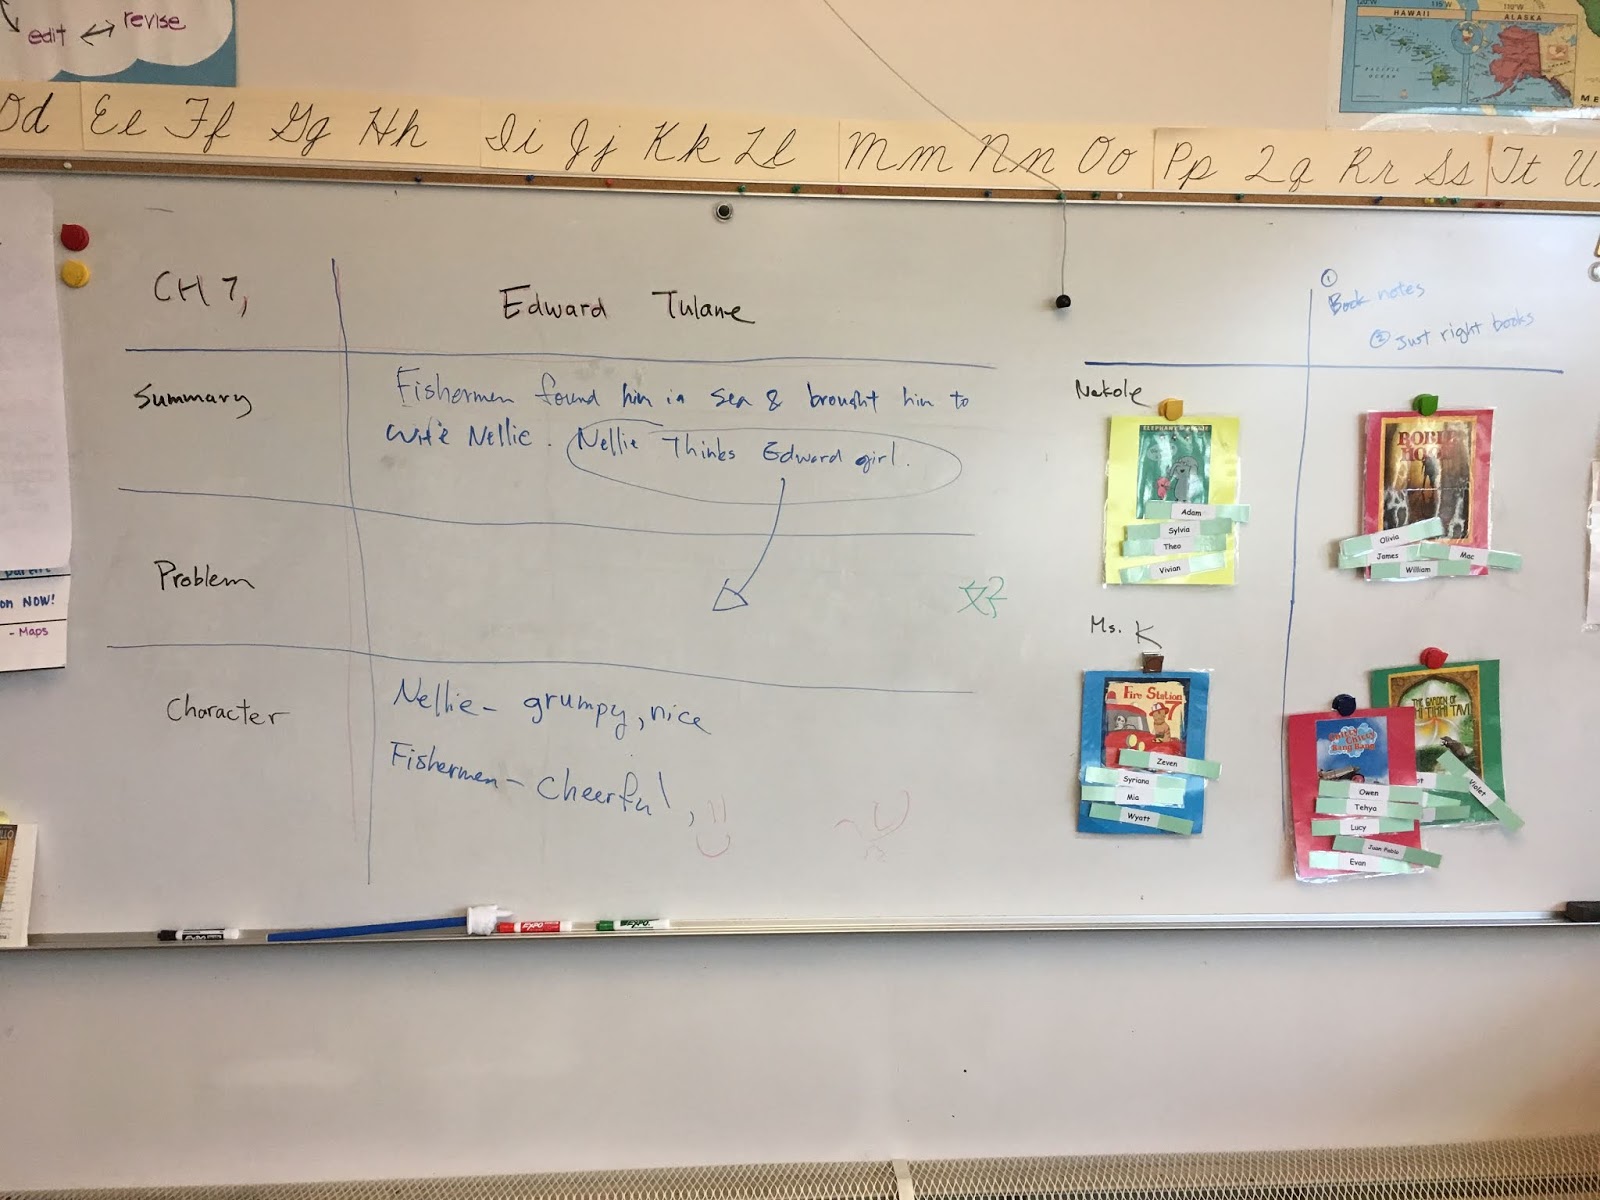 edit ↔ revise
HAWAII
ALASKA
PACIFIC OCEAN
Dd Ee Ff Gg Hh Ii Jj Kk Ll Mm Nn Oo Pp Qq Rr Ss Tt U
CH 7,
Edward Tulane
Summary
Fishermen found him in sea & brought him to
wife Nellie. Nellie Thinks Edward girl.
Problem
Character
Nellie - grumpy, nice
Fishermen - cheerful,
on NOW!
- Maps
①
Book notes
② Just right books
Nakole
Adam
Sylvia
Theo
Vivian
ROBIN
HOOD
Olivia
James
Mac
William
Ms. K
Fire Station
7
Zeven
Syriana
Mia
Wyatt
THE GARDEN OF
Chitty
Chitty
Bang Bang
Owen
Tehya
Lucy
Juan Pablo
Evan
Violet
EXPO
EXPO